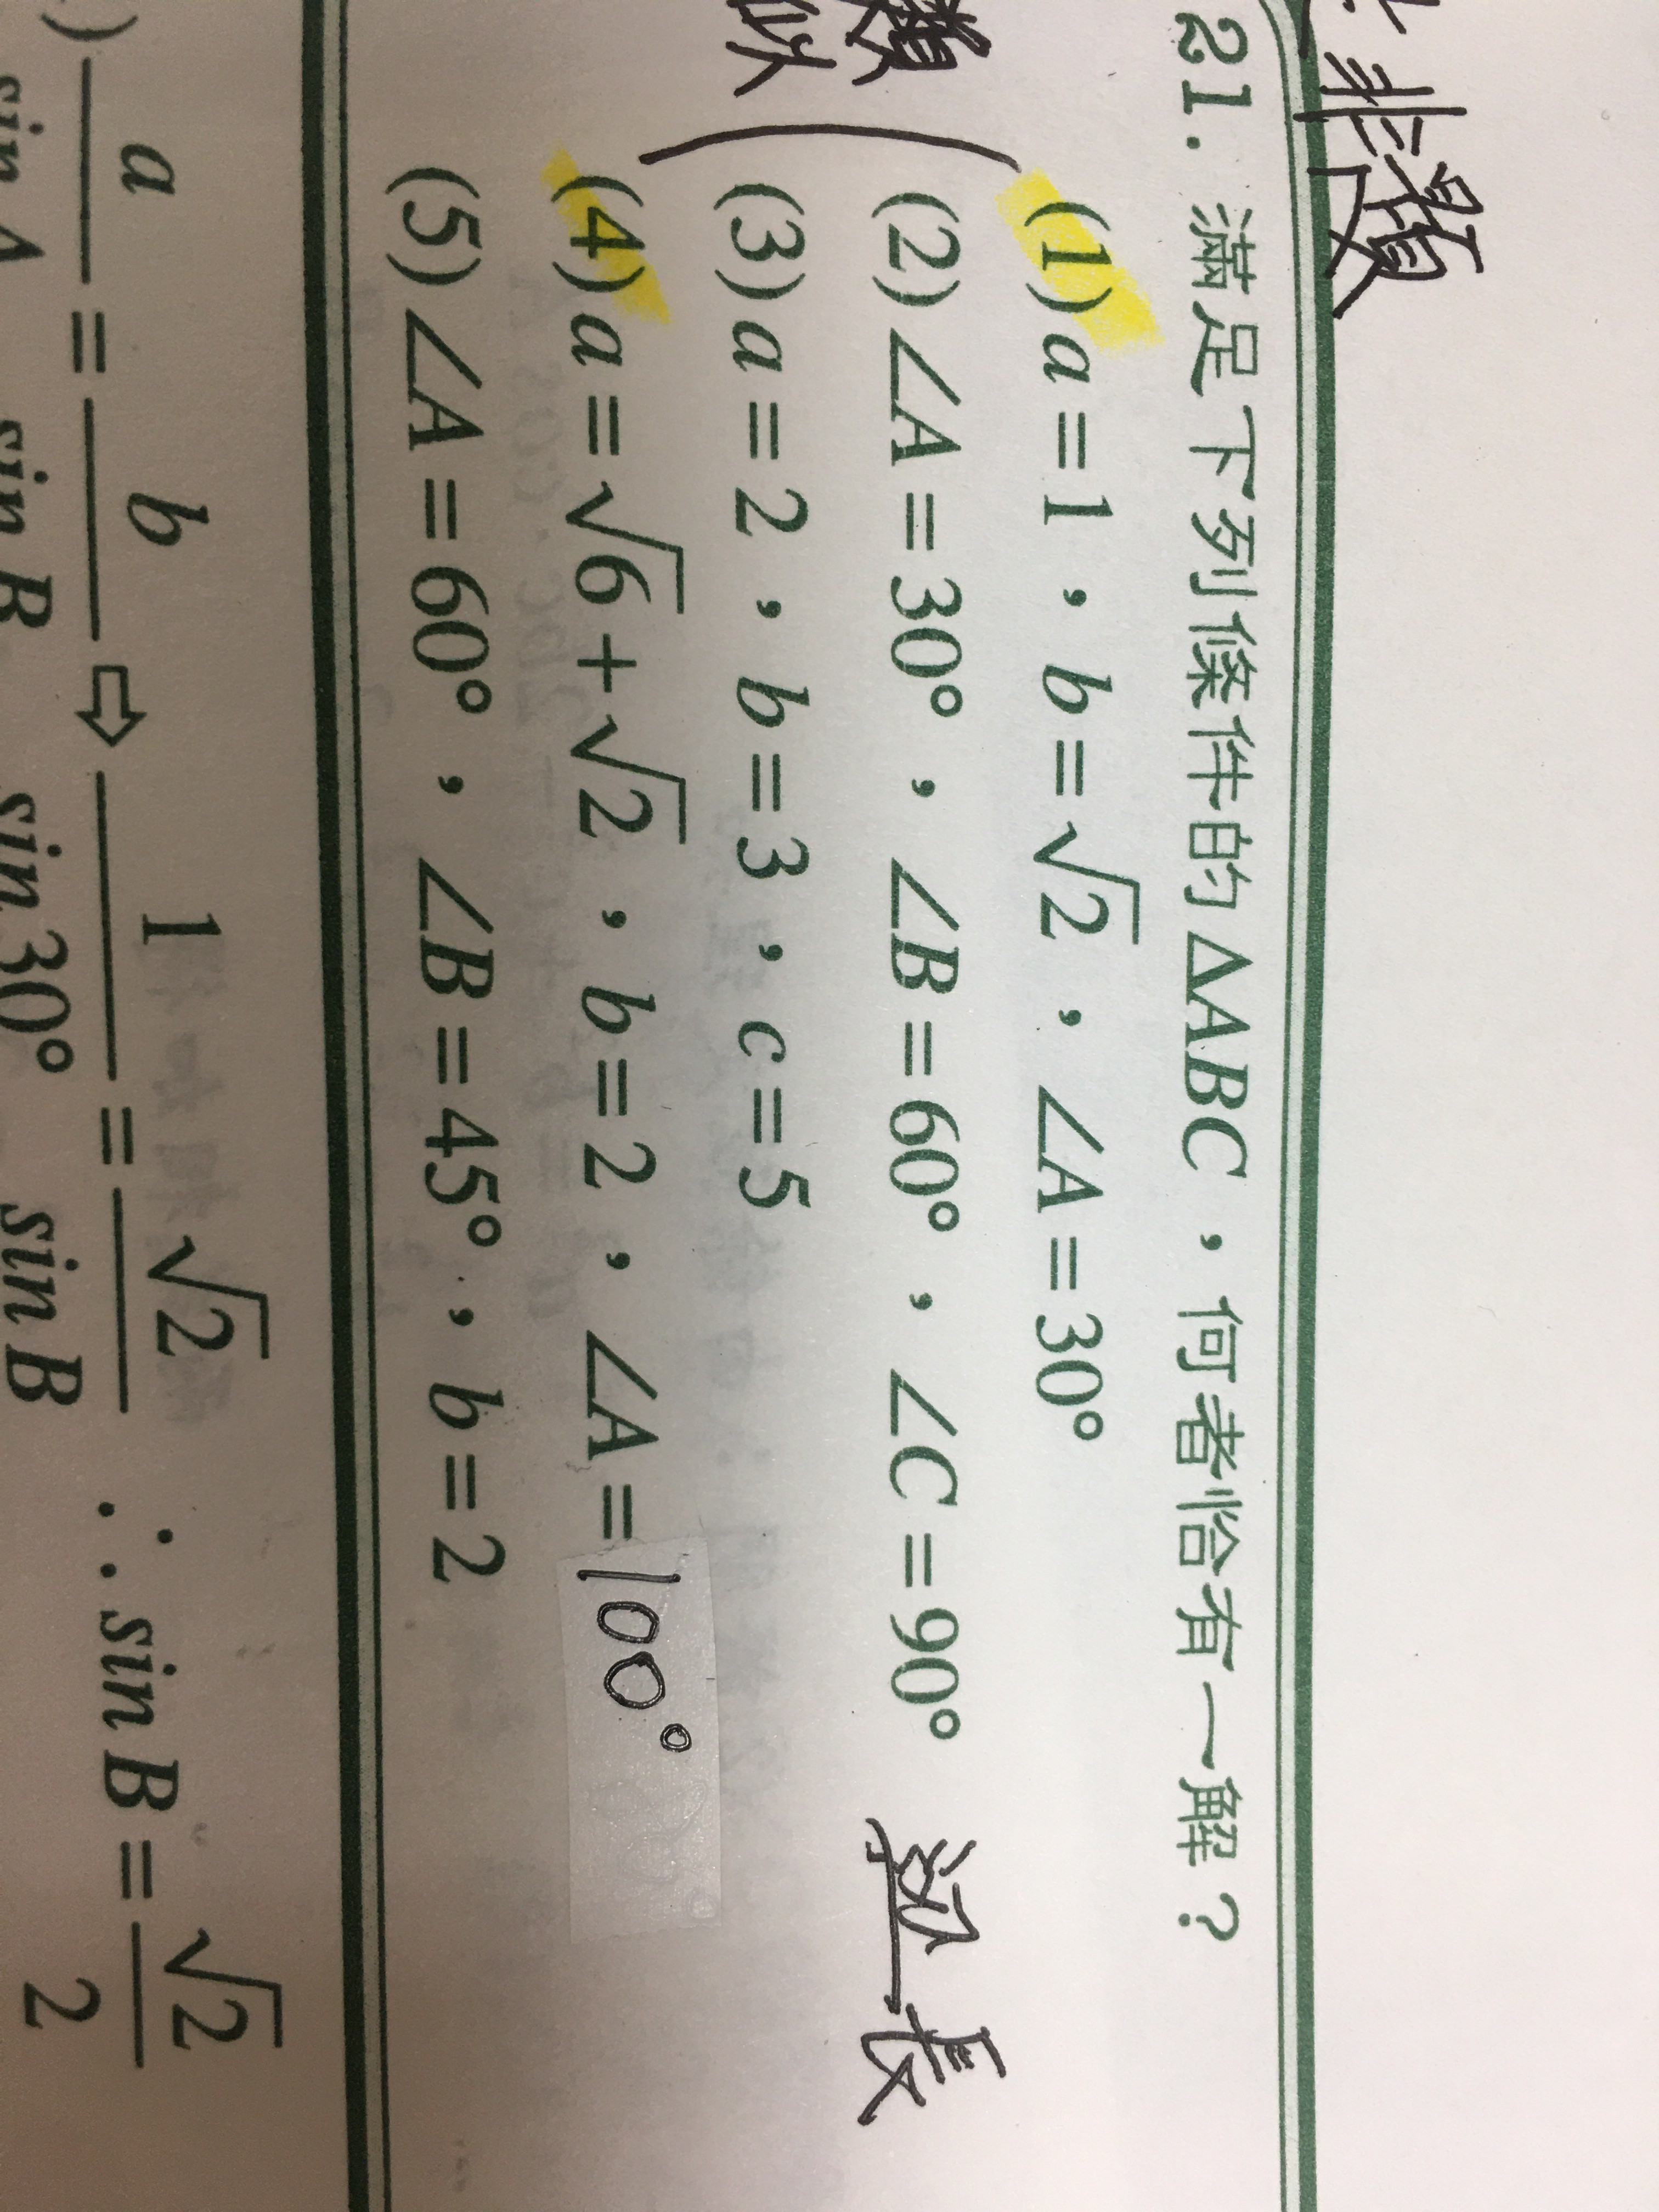 非
21. 滿足下列條件的△ABC，何者恰有一解？
(1) a=1，b=√2，∠A=30°
(2) ∠A=30°，∠B=60°，∠C=90°
(3) a=2，b=3，c=5
(4) a=√6+√2，b=2，∠A=100°
(5) ∠A=60°，∠B=45°，b=2
似
長
a/sin A = b/sin B ⇨ 1/sin 30° = √2/sin B ∴ sin B = √2/2